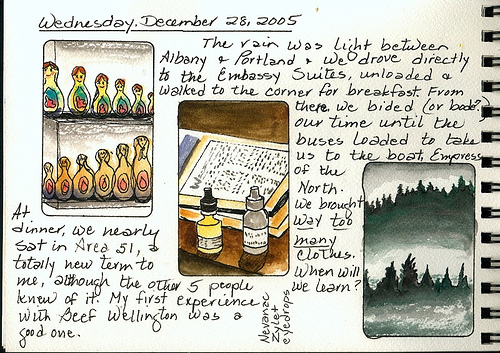 Wednesday. December 28, 2005
The rain was light between
Albany & Portland & we drove directly
to the Embassy Suites, unloaded &
walked to the corner for breakfast. From
there we bided (or bode?)
our time until the
buses loaded to take
us to the boat, Empress
of the
North.
We brought
way too
many
clothes.
When will
we learn?
At
dinner, we nearly
sat in Area 51, a
totally new term to
me, although the other 5 people
knew of it. My first experience
with Beef Wellington was a
good one.
Nevanac
Zylet
eyedrops